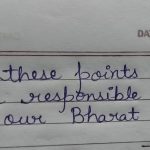 DA
these points
responsible
our Bharat